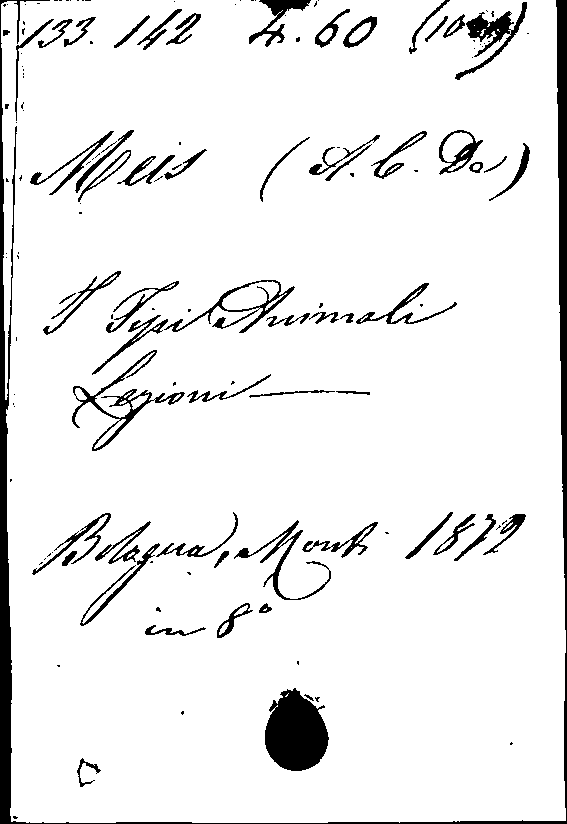 133. 142 4.60
Meis (A. C. De)
I Tipi Animali
Lezioni —
Bologna, Monti 1872
in 8°